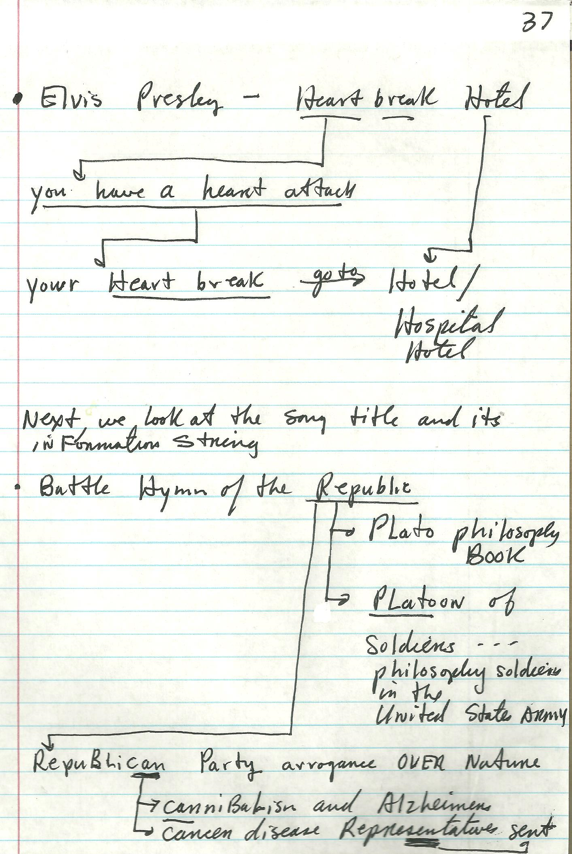 37
• Elvis Presley - Heart break Hotel
you have a heart attack
your Heart break go to Hotel/
Hospital
Hotel
Next, we look at the song title and its
inFormation String
• Battle Hymn of the Republic
PLato philosophy
BOOK
PLatoon of
Soldiers ---
philosophy soldiers
in the
United States Army
RepuBlican Party arrogance OVER Nature
canniBalism and Alzheimers
cancer disease Representatives sent